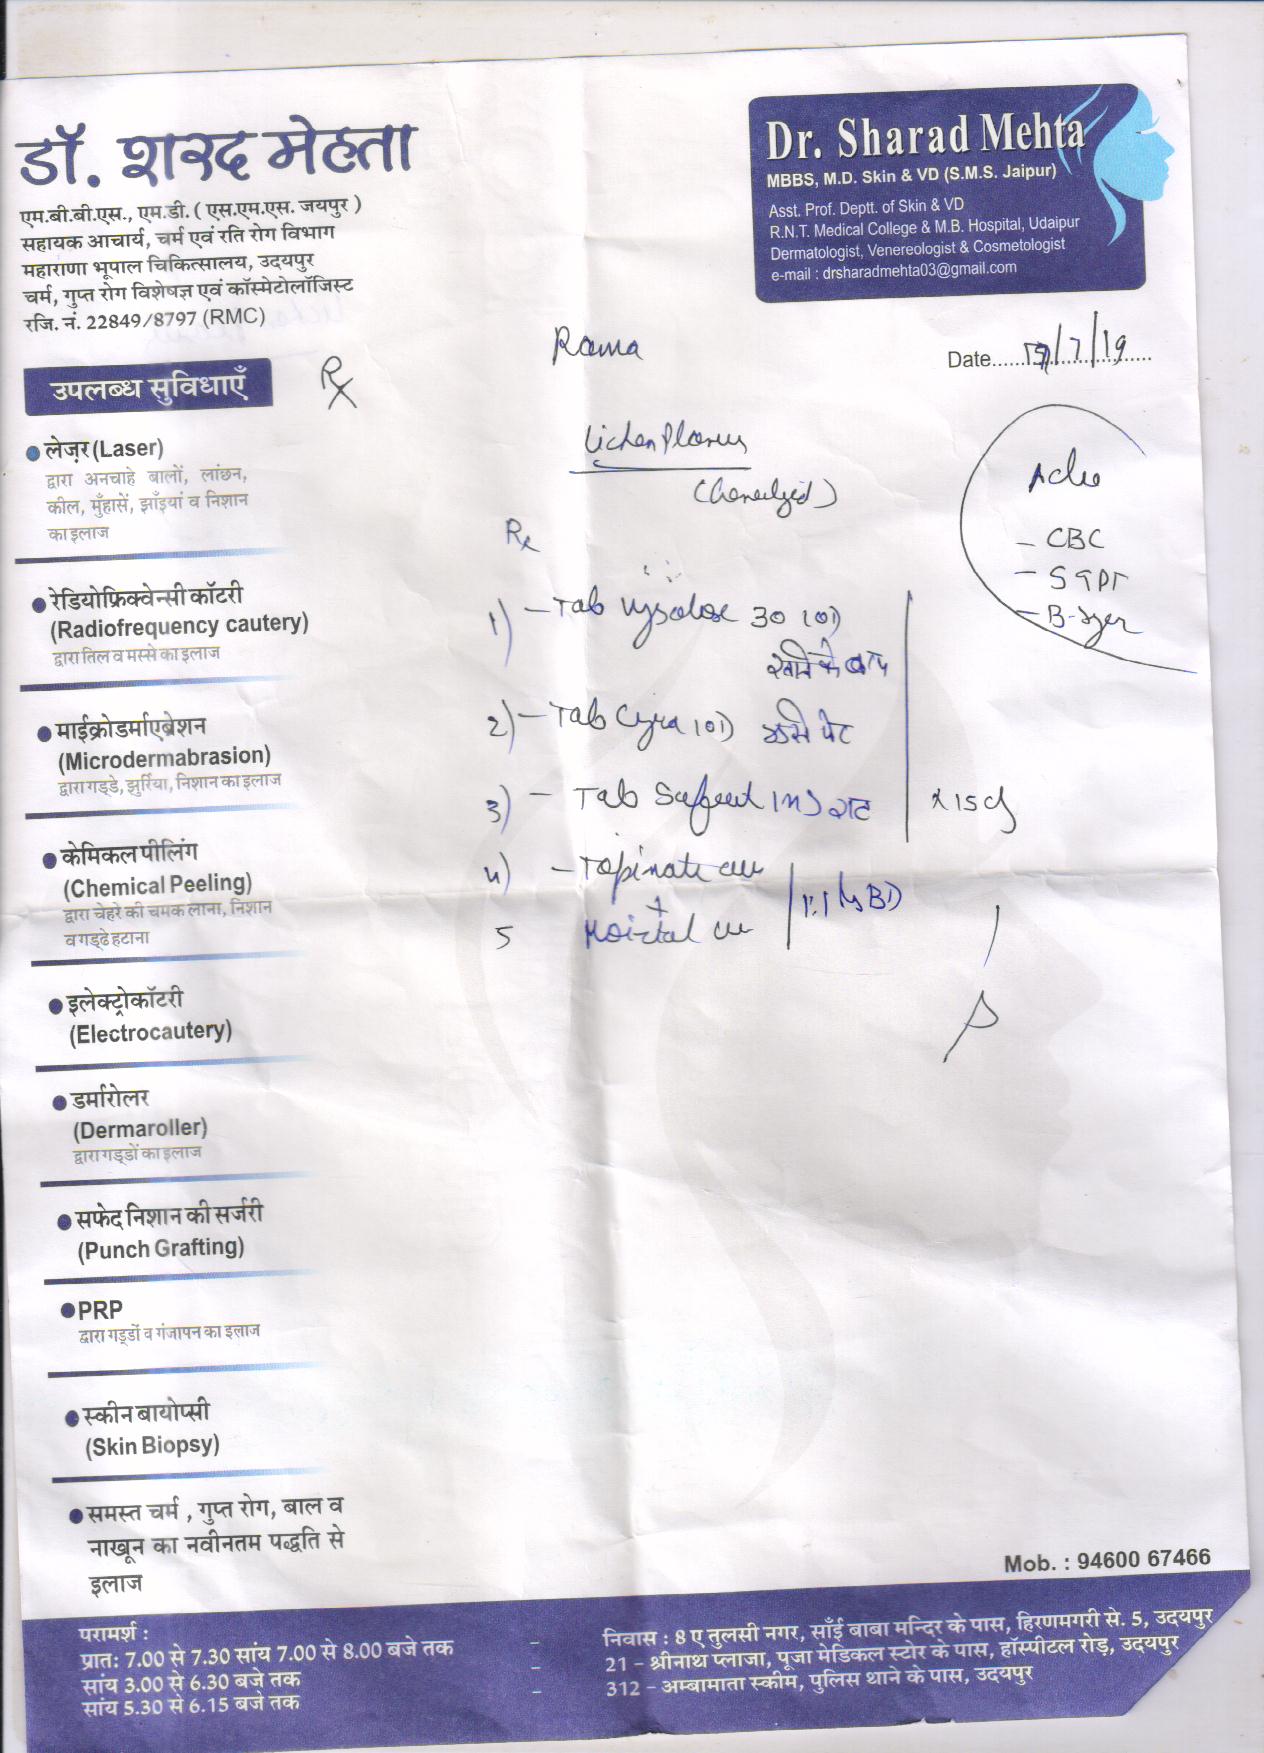 डॉ. शरद मेहता
एम.बी.बी.एस., एम.डी. ( एस.एम.एस. जयपुर )
सहायक आचार्य, चर्म एवं रति रोग विभाग
महाराणा भूपाल चिकित्सालय, उदयपुर
चर्म, गुप्त रोग विशेषज्ञ एवं कॉस्मेटोलॉजिस्ट
रजि. नं. 22849/8797 (RMC)
Dr. Sharad Mehta
MBBS, M.D. Skin & VD (S.M.S. Jaipur)
Asst. Prof. Deptt. of Skin & VD
R.N.T. Medical College & M.B. Hospital, Udaipur
Dermatologist, Venereologist & Cosmetologist
e-mail : drsharadmehta03@gmail.com
Rama
Date...... /7/19
Rx
Lichen Planus
Rx
1) - Tab Wysolone 30 1OD
खाने के बाद
2) - Tab Cyra 1OD खाली पेट
3) - Tab 1HS रात
x 15 d
4) - Topinate
+
5
BD
- CBC
- SGPT
उपलब्ध सुविधाएँ
लेज़र (Laser)
द्वारा अनचाहे बालों, लांछन,
कील, मुँहासें, झाँइयां व निशान
का इलाज
रेडियोफ्रिक्वेन्सी कॉटरी
(Radiofrequency cautery)
द्वारा तिल व मस्से का इलाज
माईक्रोडर्माएब्रेशन
(Microdermabrasion)
द्वारा गड्डे, झुर्रिया, निशान का इलाज
केमिकल पीलिंग
(Chemical Peeling)
द्वारा चेहरे की चमक लाना, निशान
व गड्ढे हटाना
इलेक्ट्रोकॉटरी
(Electrocautery)
डर्मारोलर
(Dermaroller)
द्वारा गड्डों का इलाज
सफेद निशान की सर्जरी
(Punch Grafting)
PRP
द्वारा गड्डों व गंजापन का इलाज
स्कीन बायोप्सी
(Skin Biopsy)
समस्त चर्म , गुप्त रोग, बाल व
नाखून का नवीनतम पद्धति से
इलाज
Mob. : 94600 67466
परामर्श :
प्रातः 7.00 से 7.30 सांय 7.00 से 8.00 बजे तक - निवास : 8 ए तुलसी नगर, साँई बाबा मन्दिर के पास, हिरणमगरी से. 5, उदयपुर
सांय 3.00 से 6.30 बजे तक - 21 - श्रीनाथ प्लाजा, पूजा मेडिकल स्टोर के पास, हॉस्पीटल रोड़, उदयपुर
सांय 5.30 से 6.15 बजे तक - 312 - अम्बामाता स्कीम, पुलिस थाने के पास, उदयपुर